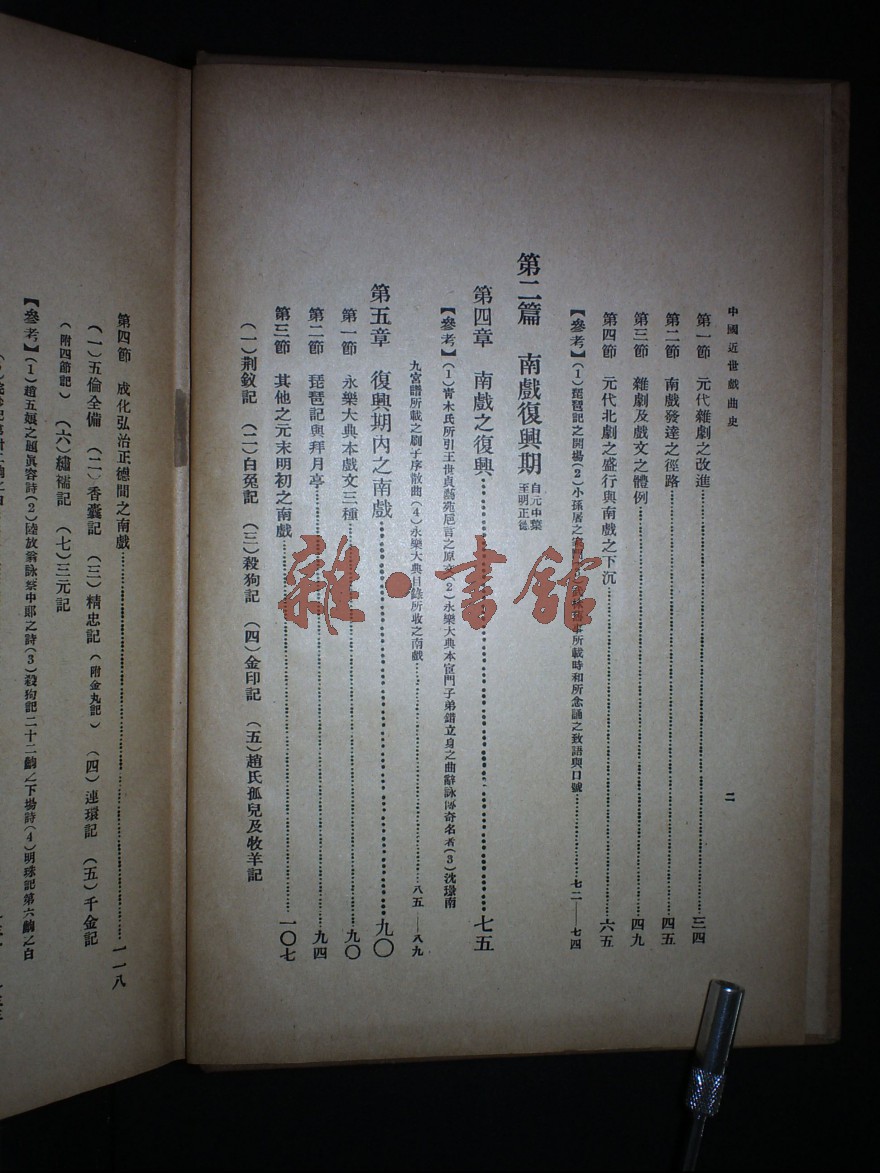 中國近世戲曲史
二
第一節 元代雜劇之改進……三四
第二節 南戲發達之徑路……四五
第三節 雜劇及戲文之體例……四九
第四節 元代北劇之盛行與南戲之下沉……六五
【參考】(1)琵琶記之開場(2)小孫屠之 所載時和所念誦之致語與口號……七二——七四
第二篇 南戲復興期 自元中葉至明正德
第四章 南戲之復興……七五
【參考】(1)青木氏所引王世貞藝苑巵言之原文(2)永樂大典本宦門子弟錯立身之曲辭詠傳奇名者(3)沈璟南
九宮譜所載之刷子序散曲(4)永樂大典目錄所收之南戲……八五——八九
第五章 復興期內之南戲……九〇
第一節 永樂大典本戲文三種……九〇
第二節 琵琶記與拜月亭……九四
第三節 其他之元末明初之南戲……一〇七
(一)荆釵記 (二)白兔記 (三)殺狗記 (四)金印記 (五)趙氏孤兒及牧羊記
第四節 成化弘治正德間之南戲……一一八
(一)五倫全備 (二)香囊記 (三)精忠記(附金丸記) (四)連環記 (五)千金記
(附四節記) (六)繡襦記 (七)三元記
【參考】(1)趙五娘之題真容詩(2)陸放翁詠蔡中郎之詩(3)殺狗記二十二齣之下場詩(4)明珠記第六齣之白
雜·書館